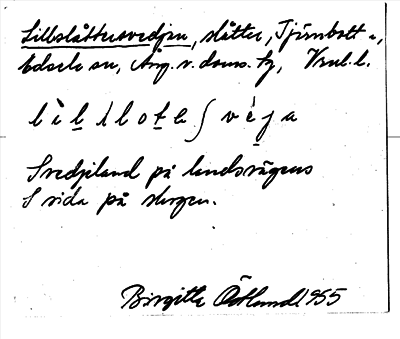 Lillslåttersvedjen, slåtter, Tjärnbott n,
Edsele sn, Ång. v. doms. tg, Vnl. l.
lìlslote∫vèja
Svedjeland på landsvägens
S sida på skogen.
Birgitta Östlund 1955